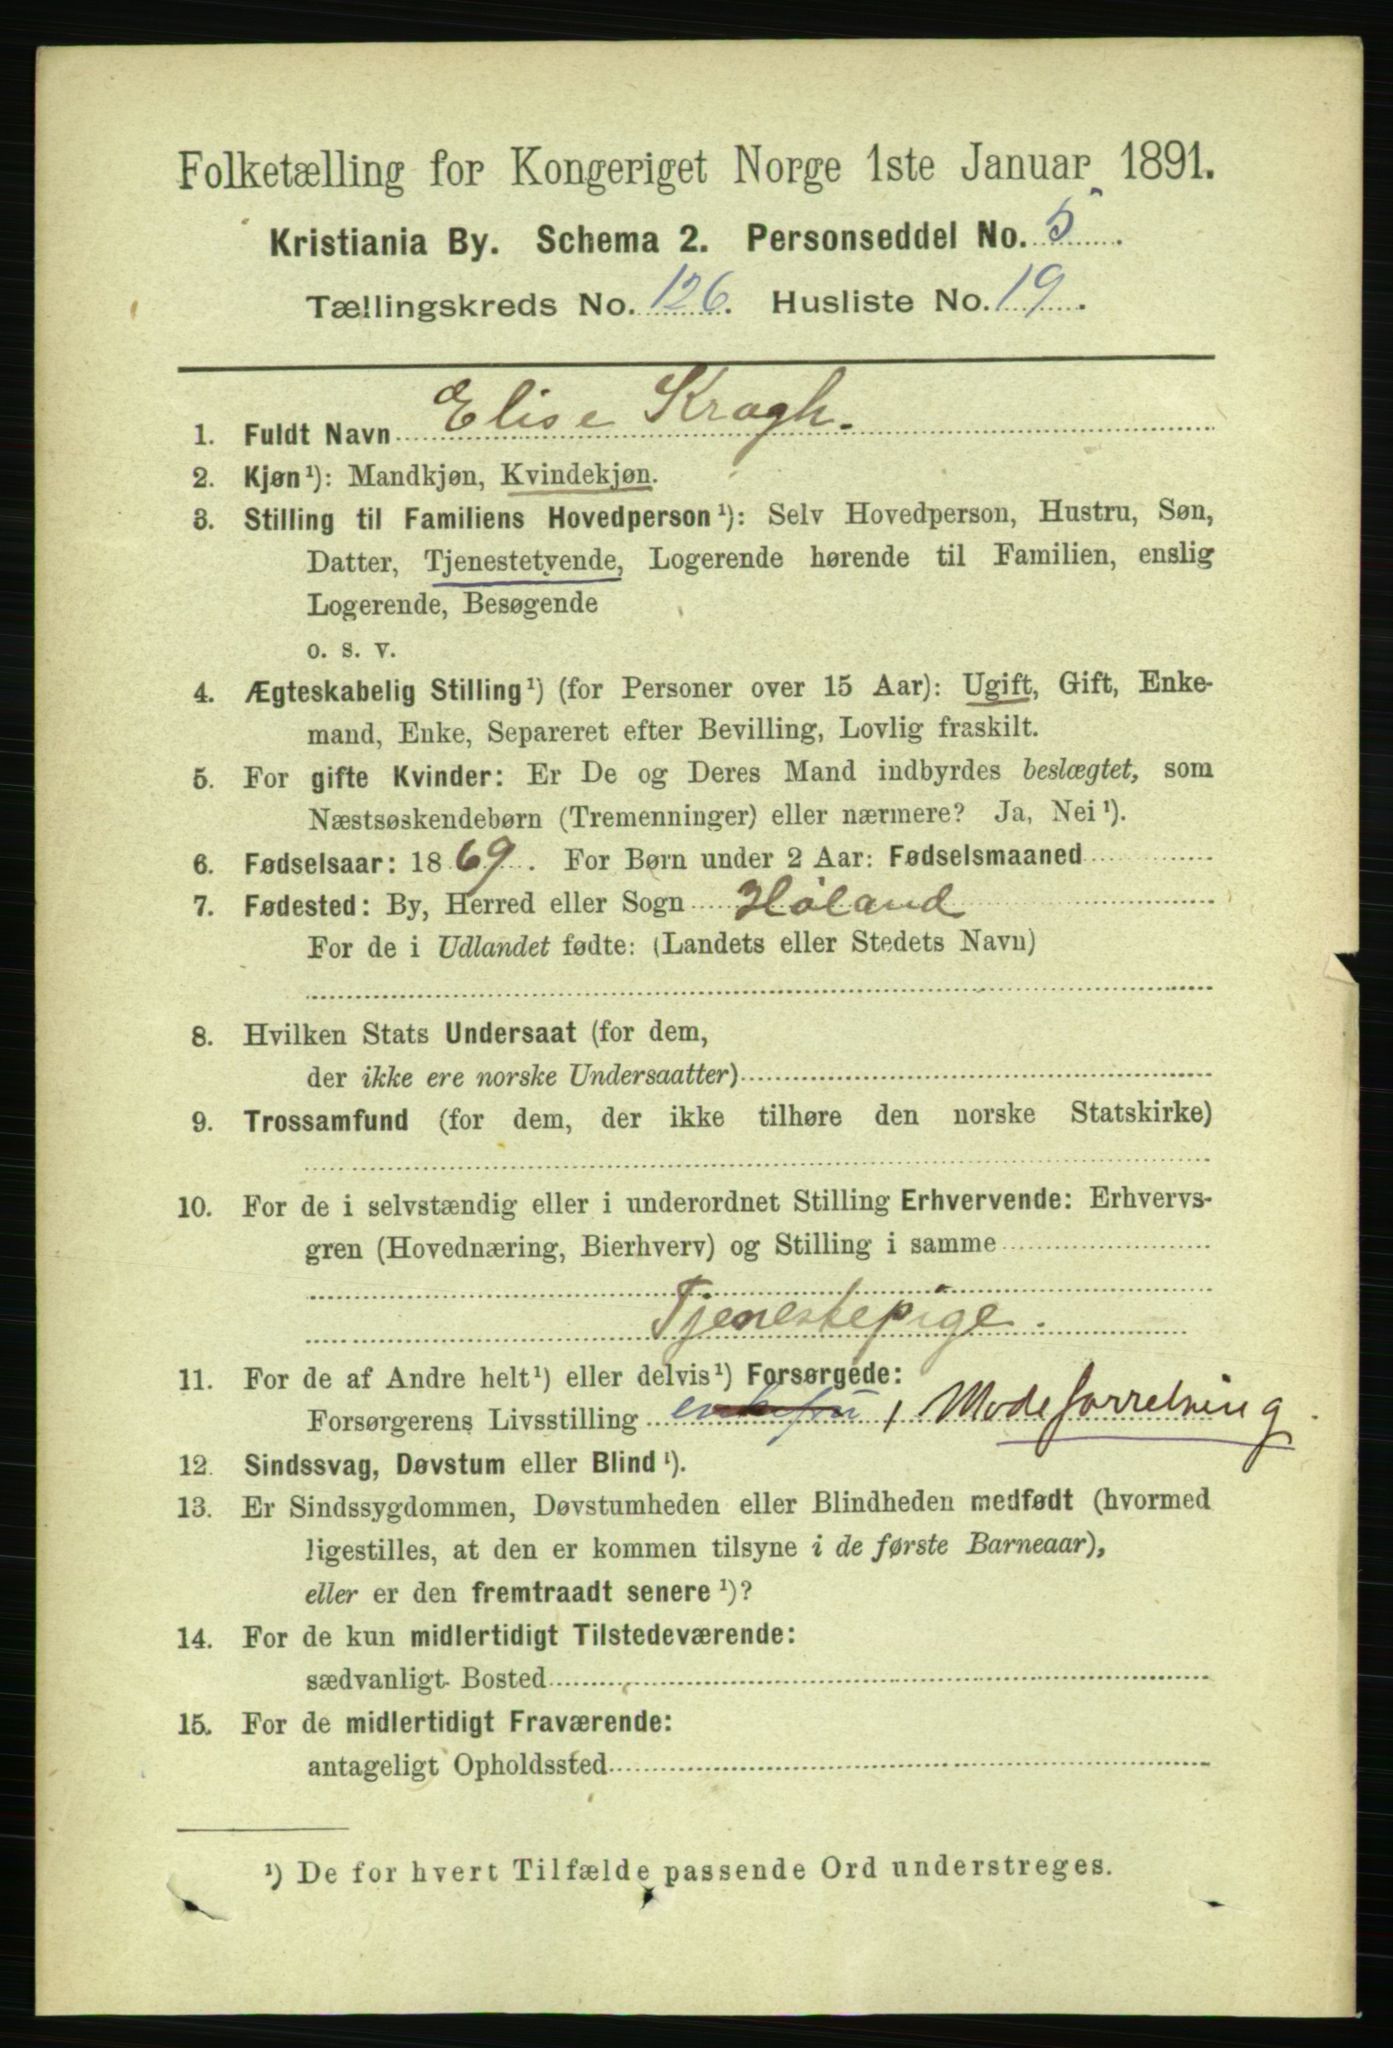 Folketælling for Kongeriget Norge 1ste Januar 1891.
Kristiania By. Schema 2. Personseddel No. 5
Tællingskreds No. 126. Husliste No. 19.
1. Fuldt Navn Elise Kragh.
2. Kjøn¹): Mandkjøn, Kvindekjøn.
3. Stilling til Familiens Hovedperson¹): Selv Hovedperson, Hustru, Søn,
Datter, Tjenestetyende, Logerende hørende til Familien, enslig
Logerende, Besøgende
o. s. v.
4. Ægteskabelig Stilling¹) (for Personer over 15 Aar): Ugift, Gift, Enke-
mand, Enke, Separeret efter Bevilling, Lovlig fraskilt.
5. For gifte Kvinder: Er De og Deres Mand indbyrdes beslægtet, som
Næstsøskendebørn (Tremenninger) eller nærmere? Ja, Nei¹).
6. Fødselsaar: 1869. For Børn under 2 Aar: Fødselsmaaned
7. Fødested: By, Herred eller Sogn Høland
For de i Udlandet fødte: (Landets eller Stedets Navn)
8. Hvilken Stats Undersaat (for dem,
der ikke ere norske Undersaatter)
9. Trossamfund (for dem, der ikke tilhøre den norske Statskirke)
10. For de i selvstændig eller i underordnet Stilling Erhvervende: Erhvervs-
gren (Hovednæring, Bierhverv) og Stilling i samme
Tjenestepige.
11. For de af Andre helt¹) eller delvis¹) Forsørgede:
Forsørgerens Livsstilling Modeforretning
12. Sindssvag, Døvstum eller Blind¹).
13. Er Sindssygdommen, Døvstumheden eller Blindheden medfødt (hvormed
ligestilles, at den er kommen tilsyne i de første Barneaar),
eller er den fremtraadt senere¹)?
14. For de kun midlertidigt Tilstedeværende:
sædvanligt Bosted
15. For de midlertidigt Fraværende:
antageligt Opholdssted
¹) De for hvert Tilfælde passende Ord understreges.